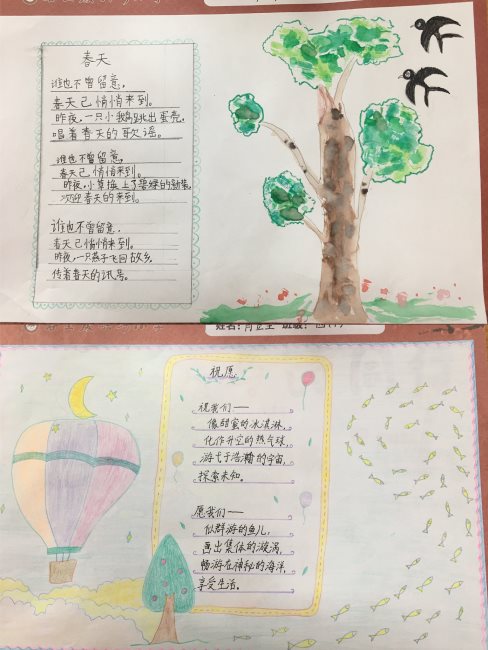 春天
谁也不曾留意，
春天已悄悄来到。
昨夜，一只小鹅跳出蛋壳，
唱着春天的歌谣。
谁也不曾留意，
春天已悄悄来到。
昨夜，小草换上了翠绿的新装，
欢迎春天的来到。
谁也不曾留意，
春天已悄悄来到。
昨夜，一只燕子飞回故乡，
传着春天的讯号。
姓名：
班级：四（1）
祝愿
祝我们——
像甜蜜的冰淇淋，
化作升空的热气球，
游弋于浩瀚的宇宙，
探索未知。
愿我们——
似群游的鱼儿，
画出集体的漩涡，
畅游在神秘的海洋，
享受生活。